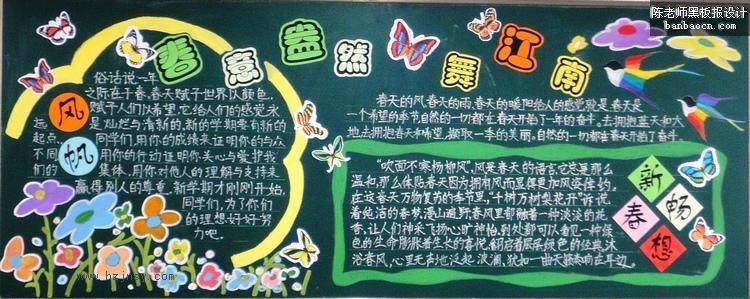 陈老师黑板报设计
banbaocn.com
春意盎然 舞江南
风帆
俗话说一年
之所在于春,春天赋于世界以颜色
赋于人们以希望,它给人们的感觉永
远是灿烂与清新的,新的学期要有新的
起点 同学们,用你的成绩来证明你的与众
不同 用你的行动证明你关心与爱护我
们的 集体,用你对他人的理解与支持来
赢得别人的尊重,新学期才刚刚开始,
同学们,为了你们
的理想好好努
力吧。
春天的风,春天的雨,春天的暖阳给人的感觉就是春天是
一个希望的季节自然的一切都在春天开始了一年的奋斗。去拥抱蓝天和大
地去拥抱春天和希望,撷取一季的美丽,自然的一切都在春天开始了奋斗。
"吹面不寒杨柳风",风是春天的语言,它总是那么
温和,那么体贴春天因为拥有风而显得更加风姿绰约,
在这春天万物复苏的季节里,"千树万树梨花开"诉说
着纯洁的春梦,漫山遍野春风里都融着一种淡淡的花
香,让人们神采飞扬心旷神怡,到处都可以看见一种绿
色的生命膨胀着生长的喜悦,翻启着层层绿色的经典,沐
浴春风,心里无声地泛起波澜,犹如一曲天籁奏响在耳边。
新春畅想